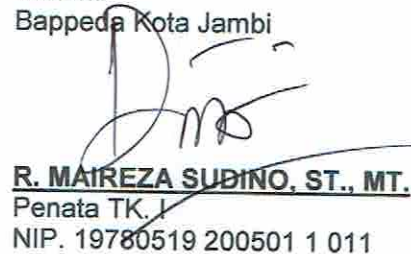 Bappeda Kota Jambi
R. MAIREZA SUDINO, ST., MT.
Penata TK. I
NIP. 19780519 200501 1 011